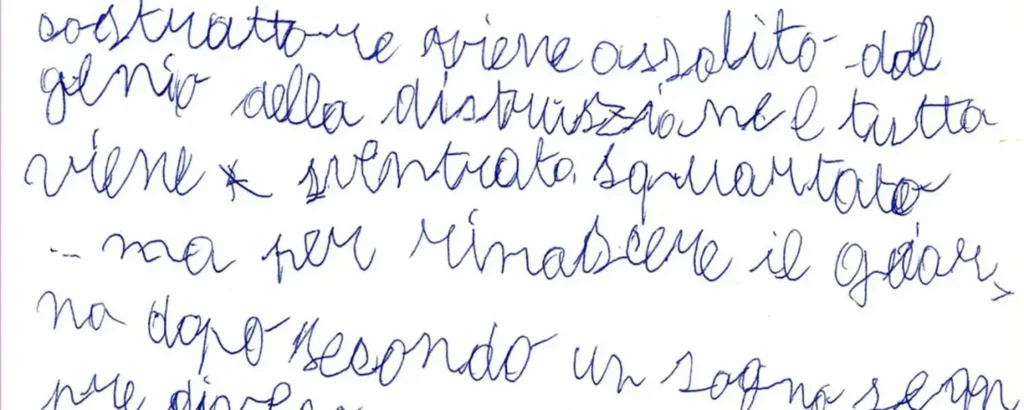 sostrattore viene assolito dal
genio della distruszione e tutta
viene sventrata squartato
... ma per rinascere il gior
no dopo secondo un sogno sem
pre diver